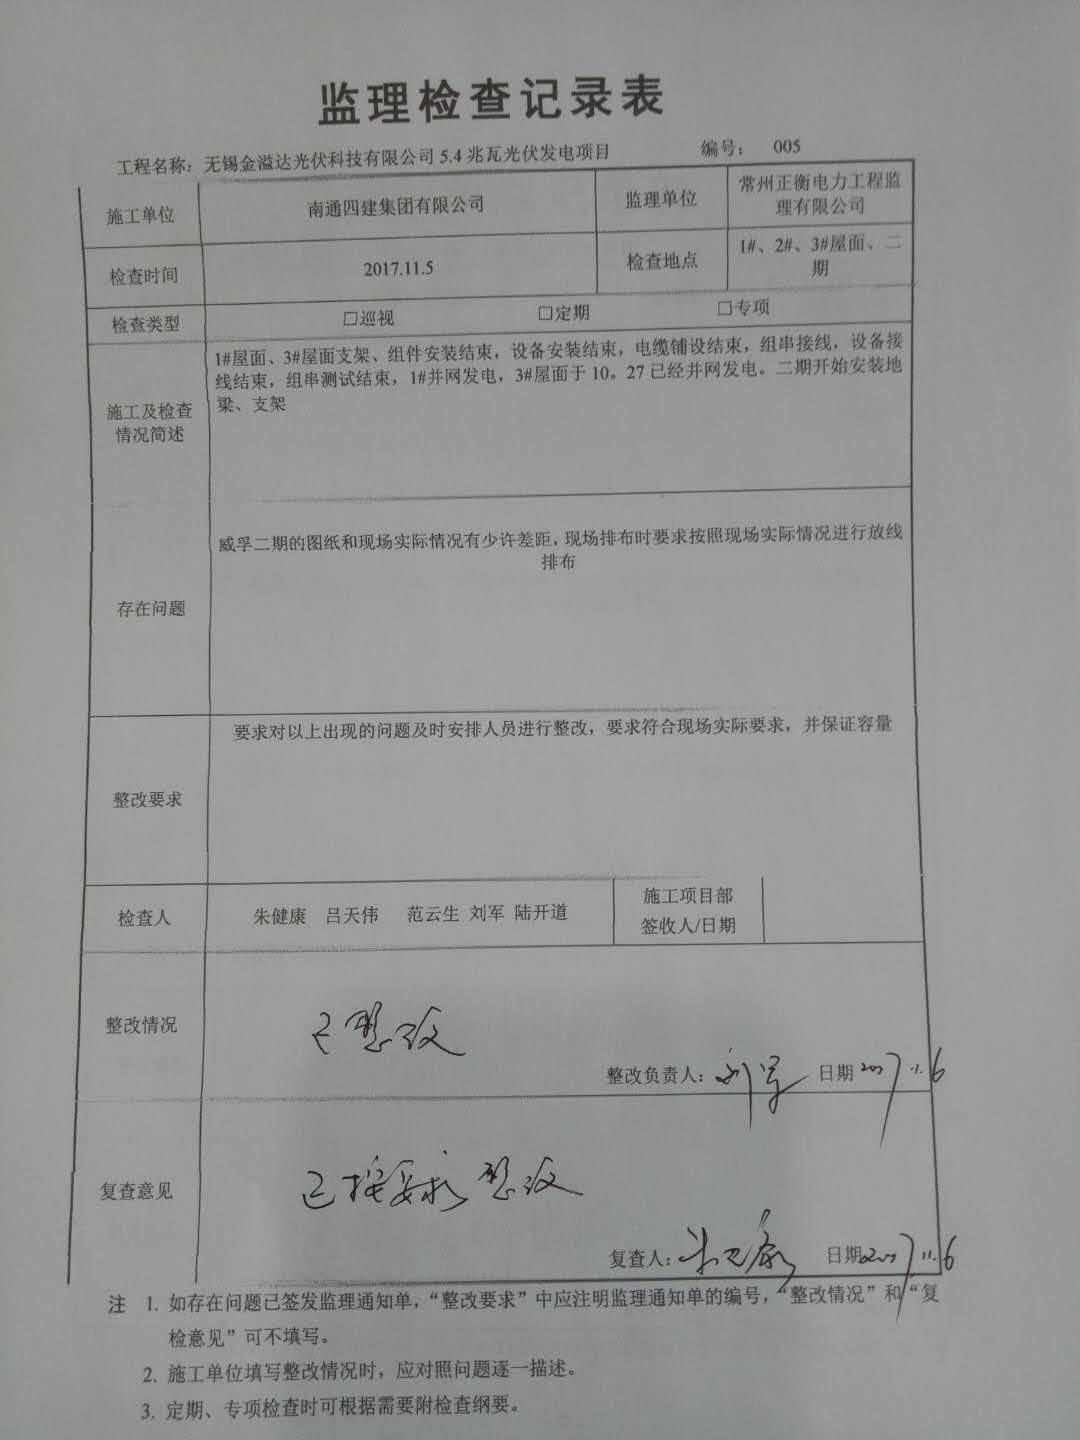 监理检查记录表
工程名称：无锡金溢达光伏科技有限公司5.4兆瓦光伏发电项目 编号： 005
施工单位 南通四建集团有限公司 监理单位 常州正衡电力工程监
理有限公司
检查时间 2017.11.5 检查地点 1#、2#、3#屋面、二
期
检查类型 □巡视 □定期 □专项
施工及检查
情况简述
1#屋面、3#屋面支架、组件安装结束，设备安装结束，电缆铺设结束，组串接线，设备接
线结束，组串测试结束，1#并网发电，3#屋面于10。27已经并网发电。二期开始安装地
梁、支架
存在问题
威孚二期的图纸和现场实际情况有少许差距，现场排布时要求按照现场实际情况进行放线
排布
整改要求
要求对以上出现的问题及时安排人员进行整改，要求符合现场实际要求，并保证容量
检查人 朱健康 吕天伟 范云生 刘军 陆开道 施工项目部
签收人/日期
整改情况
已整改
整改负责人：刘军 日期2017.11.6
复查意见
已按要求整改
复查人： 日期2017.11.6
注 1. 如存在问题已签发监理通知单，“整改要求”中应注明监理通知单的编号，“整改情况”和“复
检意见”可不填写。
2. 施工单位填写整改情况时，应对照问题逐一描述。
3. 定期、专项检查时可根据需要附检查纲要。